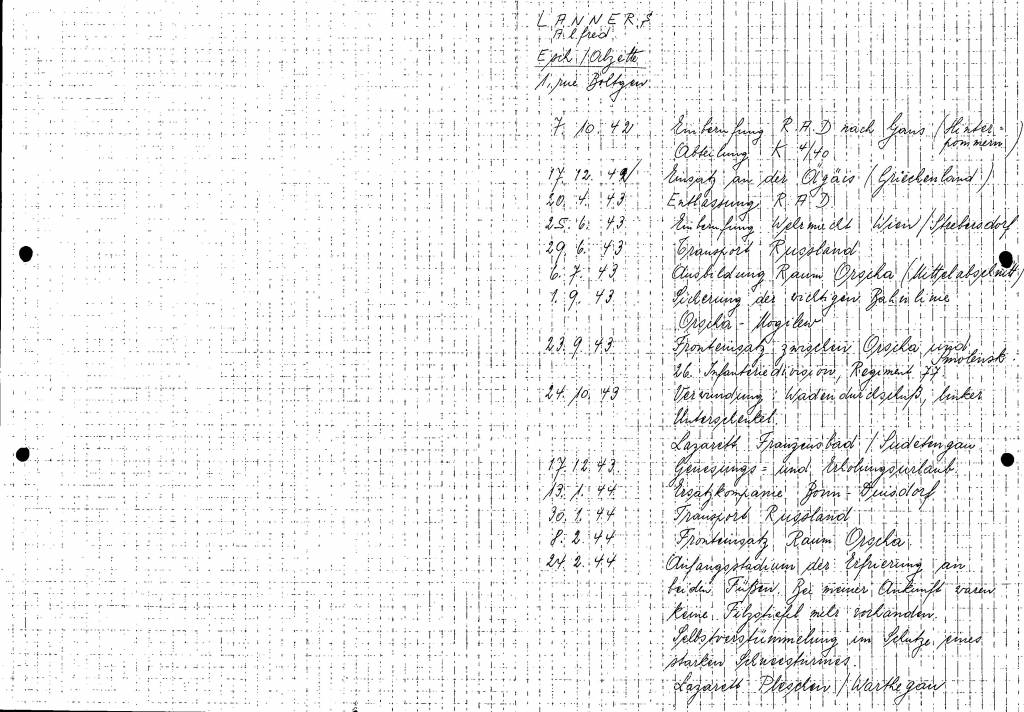 LANNERS
Alfred.
Esch/Alzette
1, rue Boltgen
7. 10. 42 Einberufung R.A.D nach Gans (Hinter=
pommern)
Abteilung K 4/40
17. 12. 42 Einsatz an der Ägäis (Griechenland)
20. 4. 43 Entlassung R.A.D
25. 6. 43 Einberufung Wehrmacht Wien/Strebersdorf
29. 6. 43 Transport Russland
6. 7. 43 Ausbildung Raum Orscha (Mittelabschnitt)
1. 9. 43 Sicherung der wichtigen Bahnlinie
Orscha - Mogilew
23. 9. 43 Fronteinsatz zwischen Orscha und
Smolensk
26. Infanteriedivision, Regiment 77
24. 10. 43 Verwundung: Wadendurchschuß, linker
Unterschenkel.
Lazarett Franzensbad / Sudetengau
17. 12. 43. Genesungs= und Erholungsurlaub.
13. 1. 44 Ersatzkompanie Bonn-Duisdorf
30. 1. 44 Transport Russland
8. 2. 44 Fronteinsatz Raum Orscha.
24. 2. 44 Anfangsstadium der Erfrierung an
beiden Füßen. Bei meiner Ankunft waren
keine Filzstiefel mehr vorhanden.
Selbstverstümmelung im Schutze eines
starken Schneesturmes.
Lazarett Pleschen / Warthegau